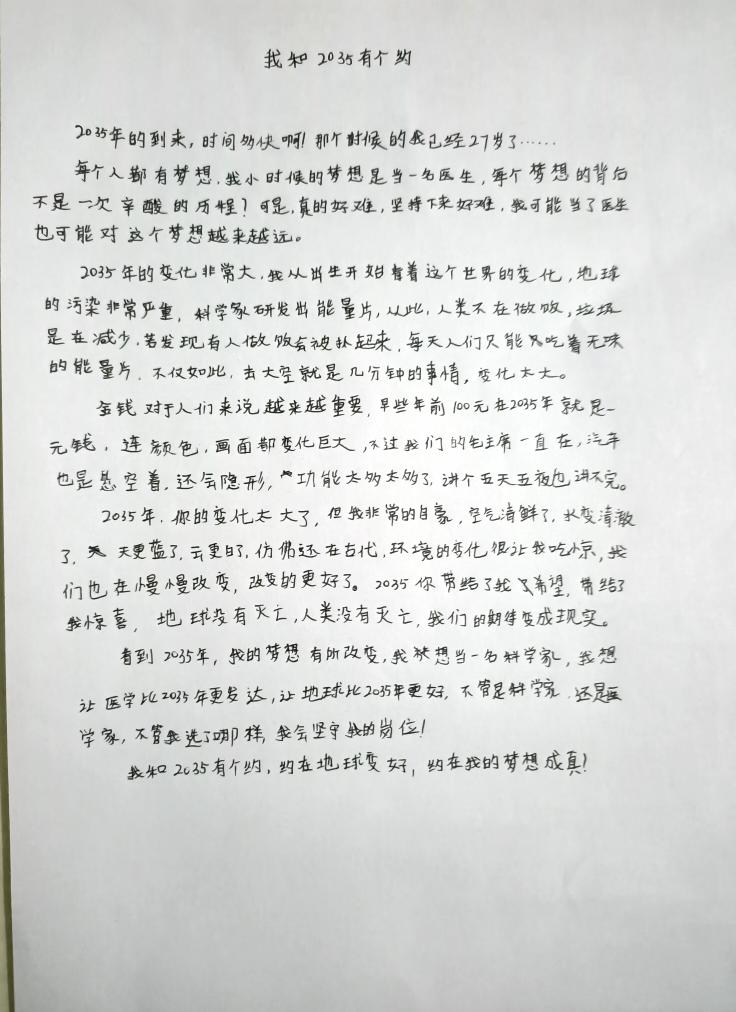 我和2035有个约
2035年的到来，时间多快啊！那个时候的我已经27岁了……
每个人都有梦想，我小时候的梦想是当一名医生，每个梦想的背后
不是一次辛酸的历程？可是，真的好难，坚持下来好难，我可能当了医生
也可能对这个梦想越来越远。
2035年的变化非常大，我从出生开始看着这个世界的变化，地球
的污染非常严重，科学家研发出能量片，从此，人类不在做饭，垃圾
是在减少，若发现有人做饭会被扒起来，每天人们只能吃着无味
的能量片，不仅如此，去太空就是几分钟的事情，变化太大。
金钱对于人们来说越来越重要，早些年前100元在2035年就是一
元钱，连颜色，画面都变化巨大，不过我们的毛主席一直在，汽车
也是悬空着，还会隐形，功能太多太多了，讲个五天五夜也讲不完。
2035年，你的变化太大了，但我非常的自豪，空气清鲜了，水变清澈
了，天更蓝了，云更白了，仿佛还在古代，环境的变化很让我吃惊，我
们也在慢慢改变，改变的更好了。2035你带给了我希望，带给了
我惊喜，地球没有灭亡，人类没有灭亡，我们的期待变成现实。
看到2035年，我的梦想有所改变，我想当一名科学家，我想
让医学比2035年更发达，让地球比2035年更好，不管是科学家，还是医
学家，不管我选了哪样，我会坚守我的岗位！
我和2035有个约，约在地球变好，约在我的梦想成真！